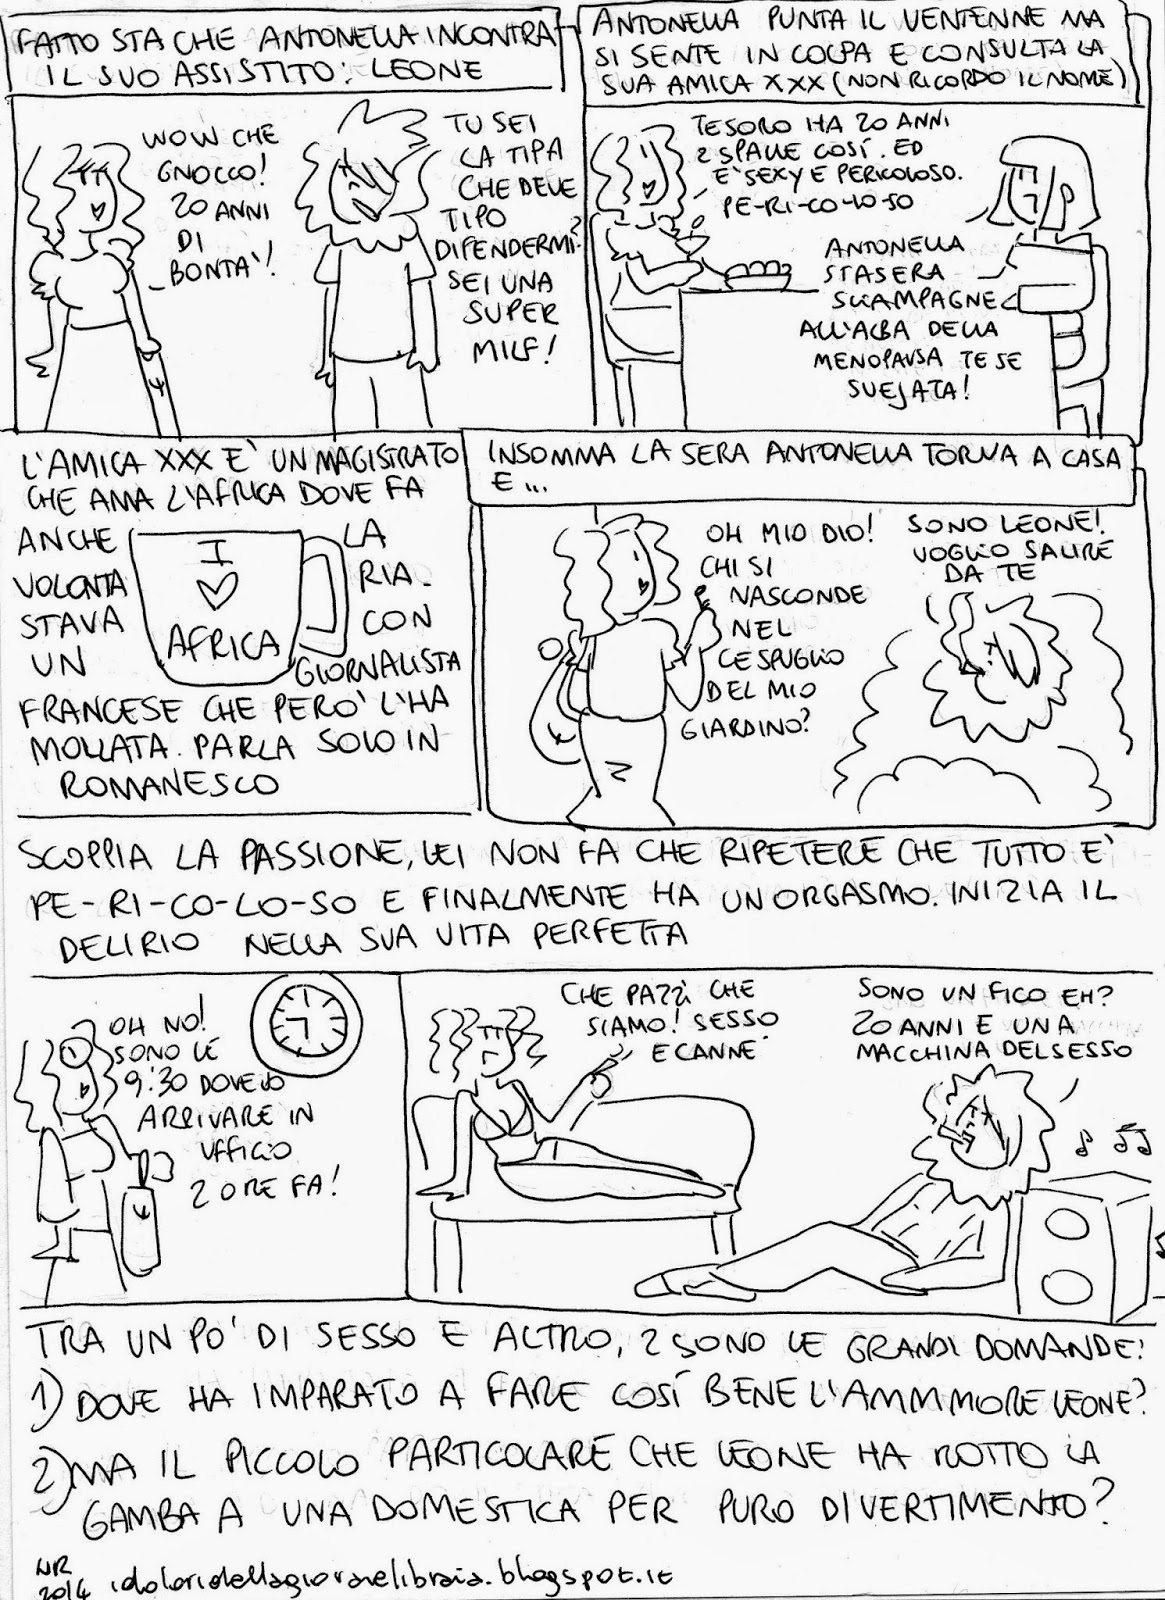 FATTO STA CHE ANTONELLA INCONTRA
IL SUO ASSISTITO: LEONE
WOW CHE
GNOCCO!
20 ANNI
DI
BONTA'!
TU SEI
LA TIPA
CHE DEVE
TIPO
DIFENDERMI?
SEI UNA
SUPER
MILF!
ANTONELLA PUNTA IL VENTENNE MA
SI SENTE IN COLPA E CONSULTA LA
SUA AMICA XXX (NON RICORDO IL NOME)
TESORO HA 20 ANNI
2 SPALLE COSÍ. ED
E' SEXY E PERICOLOSO.
PE-RI-CO-LO-SO
ANTONELLA
STASERA
SCIAMPAGNE
ALL'ALBA DELLA
MENOPAUSA TE SE
SVEJATA!
L'AMICA XXX E' UN MAGISTRATO
CHE AMA L'AFRICA DOVE FA
ANCHE LA
VOLONTA RIA.
STAVA CON
UN GIORNALISTA
FRANCESE CHE PERO' L'HA
MOLLATA. PARLA SOLO IN
ROMANESCO
I
AFRICA
INSOMMA LA SERA ANTONELLA TORNA A CASA
E...
OH MIO DIO!
CHI SI
NASCONDE
NEL
CESPUGLIO
DEL MIO
GIARDINO?
SONO LEONE!
VOGLIO SALIRE
DA TE
SCOPPIA LA PASSIONE, LEI NON FA CHE RIPETERE CHE TUTTO E'
PE-RI-CO-LO-SO E FINALMENTE HA UN ORGASMO. INIZIA IL
DELIRIO NELLA SUA VITA PERFETTA
OH NO!
SONO LE
9:30 DOVEVO
ARRIVARE IN
UFFICIO
2 ORE FA!
CHE PAZZI CHE
SIAMO! SESSO
E CANNE
SONO UN FICO EH?
20 ANNI E UNA
MACCHINA DEL SESSO
TRA UN PO' DI SESSO E ALTRO, 2 SONO LE GRANDI DOMANDE:
1) DOVE HA IMPARATO A FARE COSÍ BENE L'AMMMORE LEONE?
2) MA IL PICCOLO PARTICOLARE CHE LEONE HA ROTTO LA
GAMBA A UNA DOMESTICA PER PURO DIVERTIMENTO?
NR
2014 idoloridellagiovanelibraia.blogspot.it